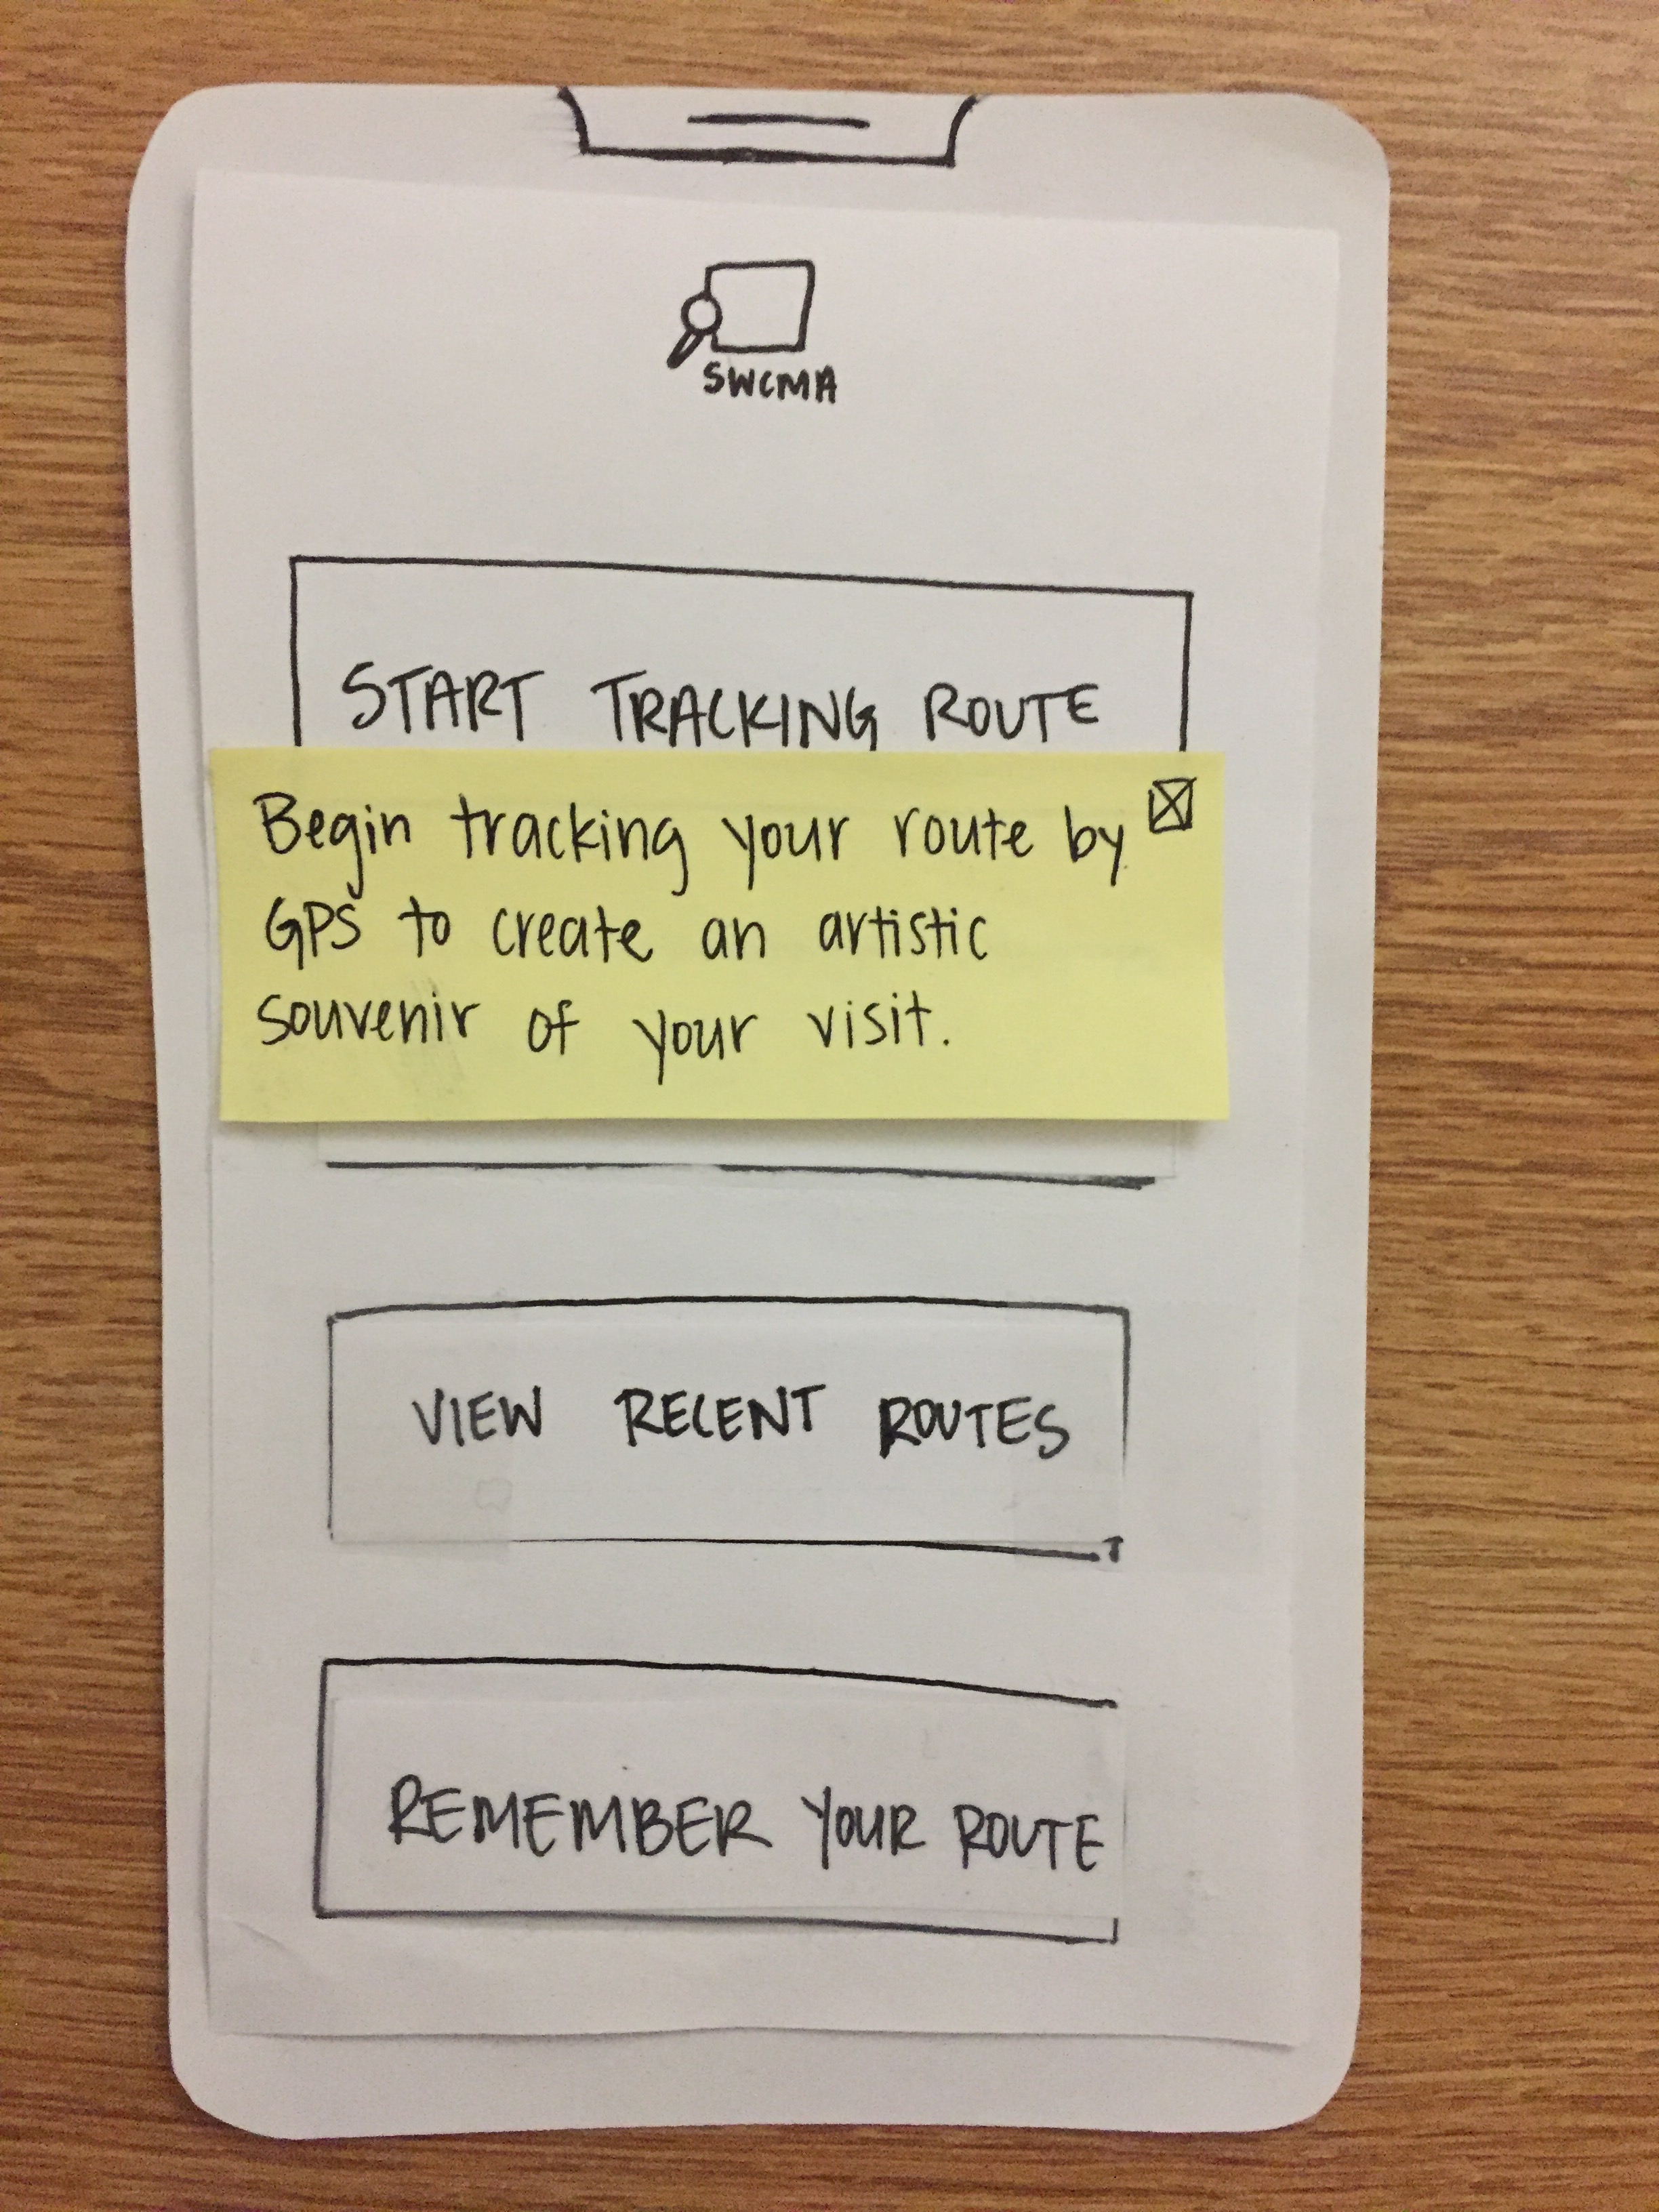 SWCMA
START TRACKING ROUTE
Begin tracking your route by
GPS to create an artistic
souvenir of your visit.
VIEW RECENT ROUTES
REMEMBER YOUR ROUTE